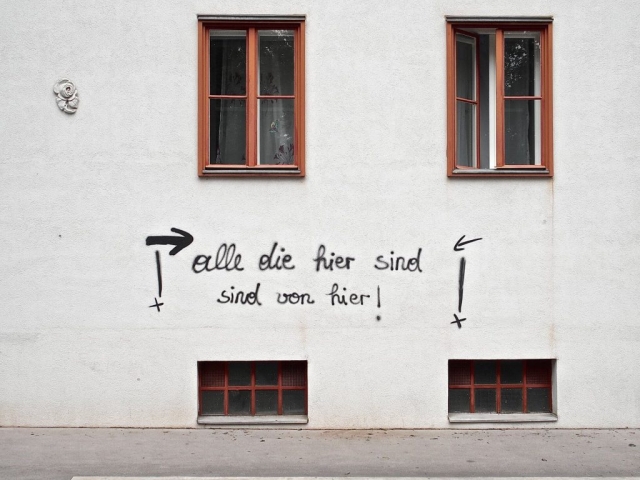 alle die hier sind
sind von hier!